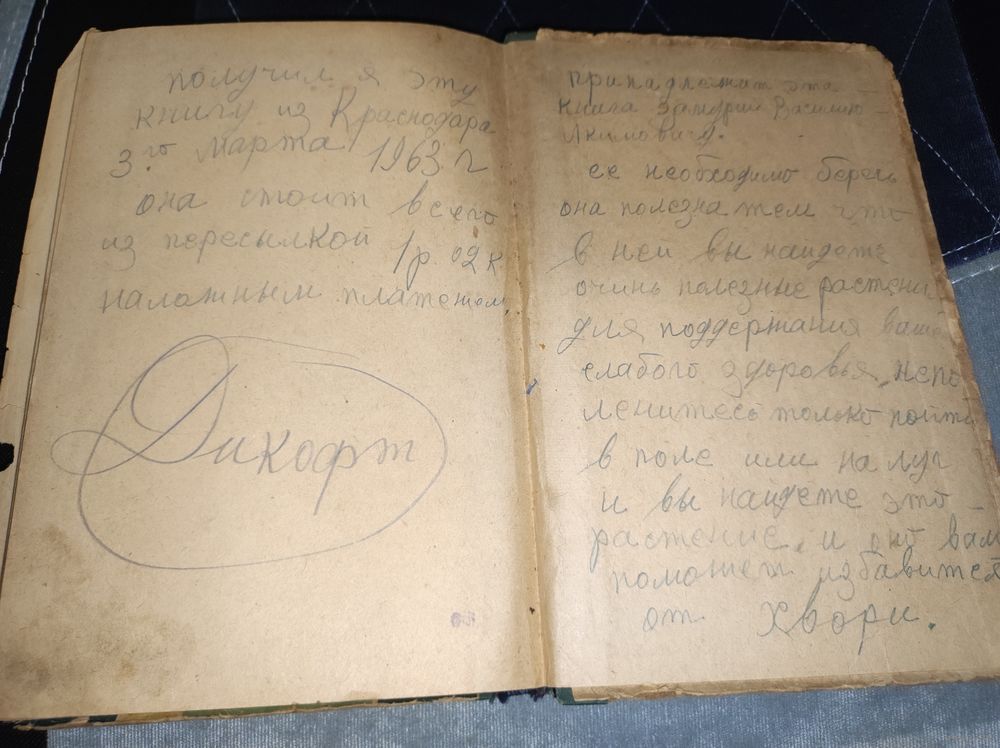 получил я эту
книгу из Краснодара
3го марта 1963 г
она стоит всего
из пересылкой 1 р. 02 к
наложным платежом,
Дикофт
63
принадлежит эта
книга Запурий Василию
Якимовичу.
ее необходимо беречь
она полезна тем что
в ней вы найдете
очинь полезные растени
для поддержания ваше
слабого здоровья, непо
ленитесь только пойти
в поле или на луг
и вы найдете это
растение, и оно вам
поможет избавится
от Хвори.